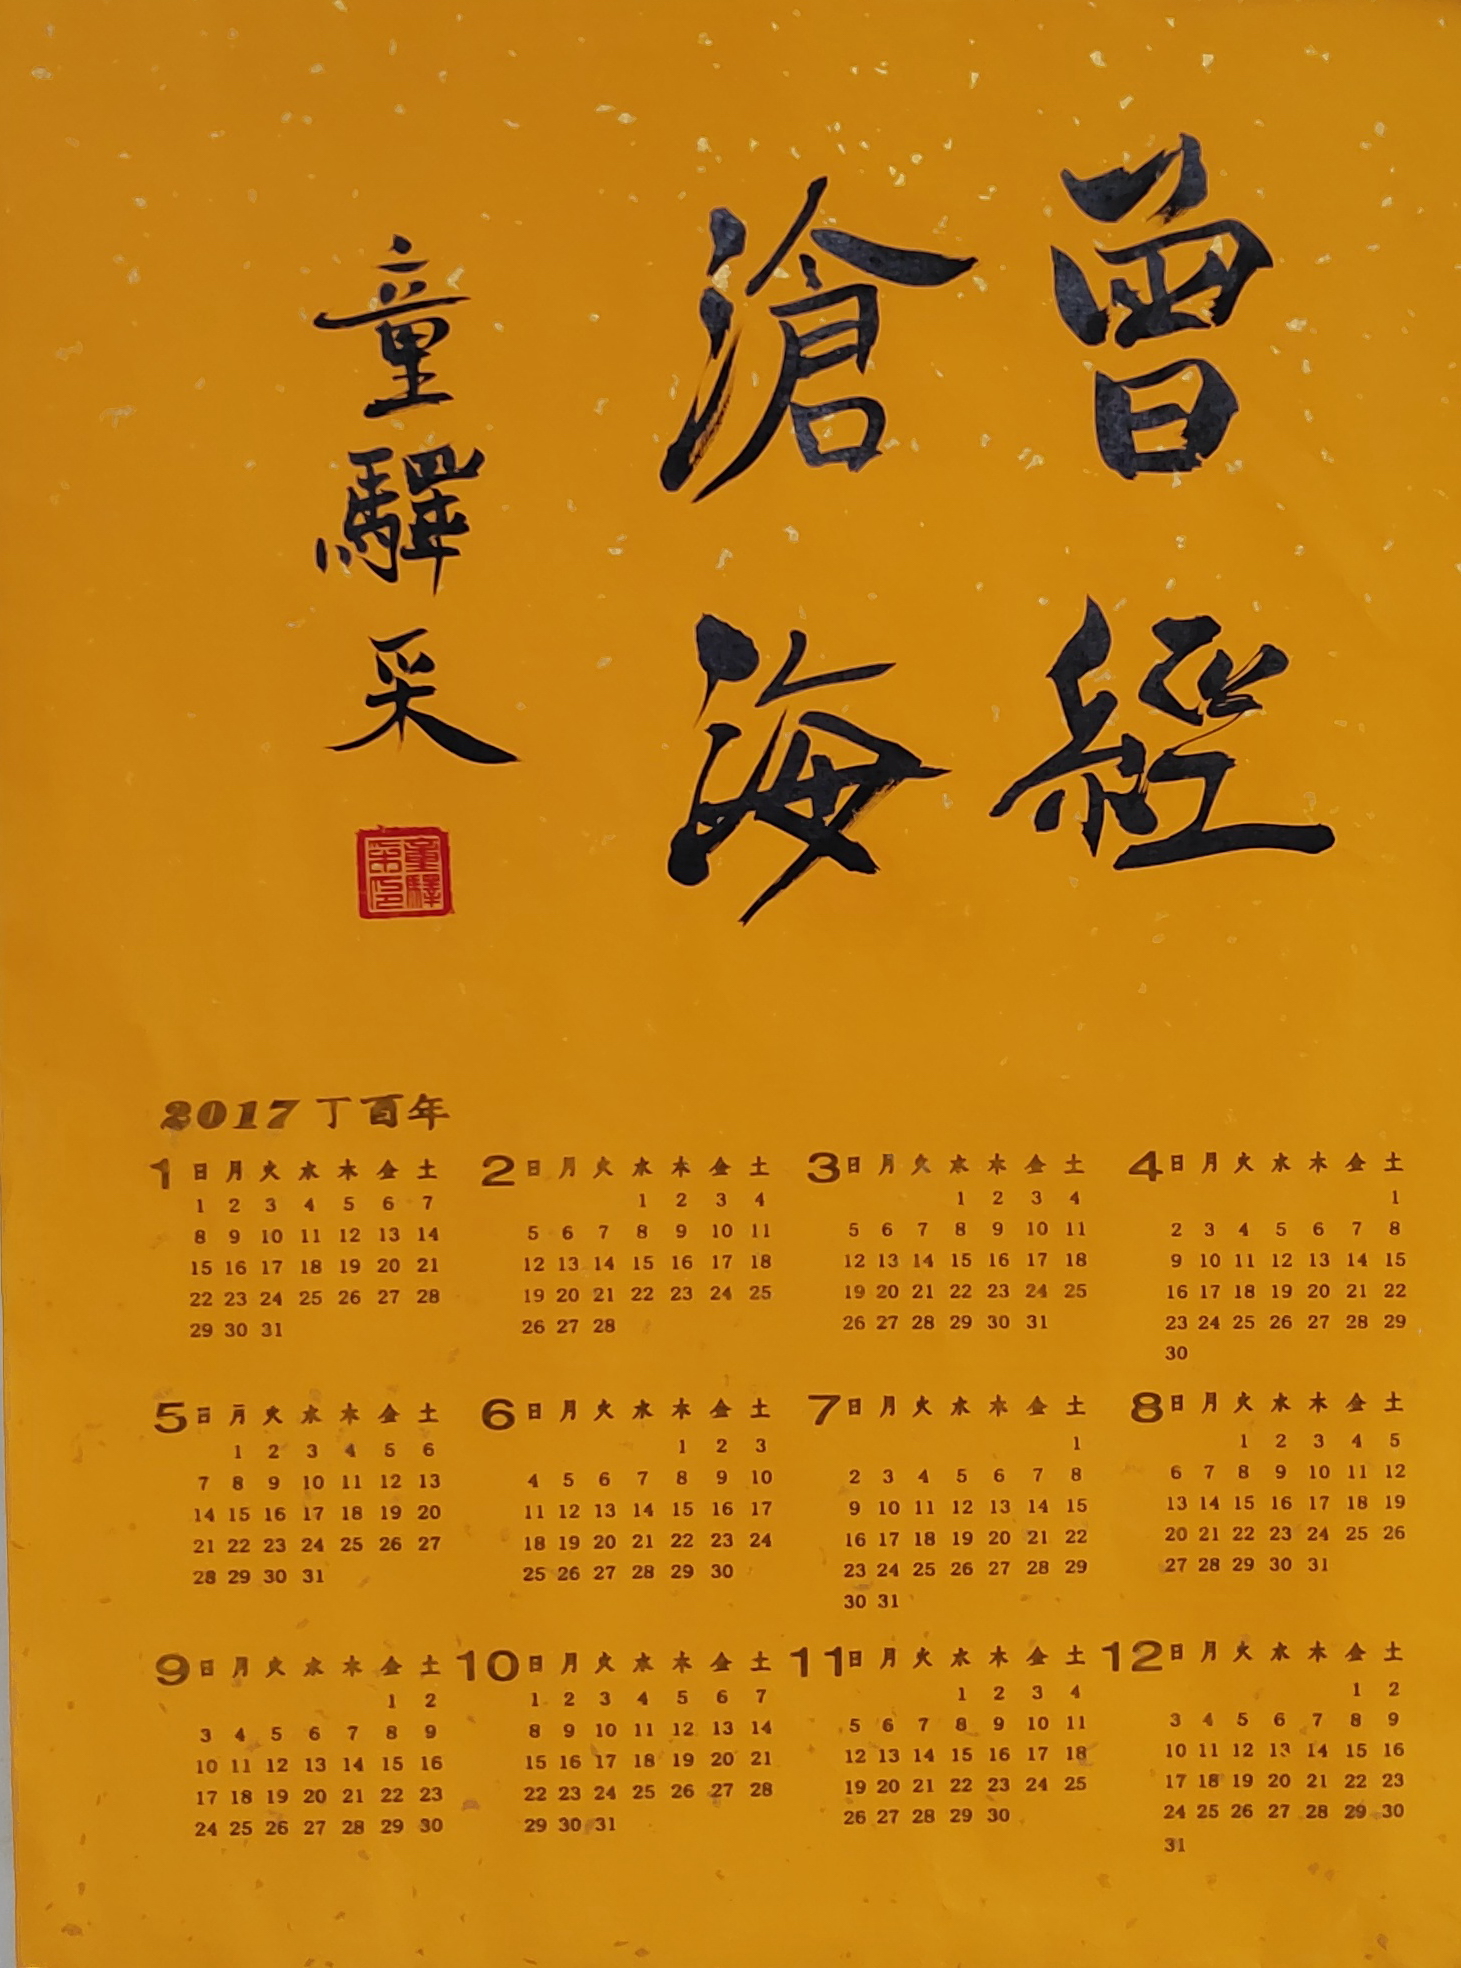 曾經
滄海
童驛采
童驛
采印
2017 丁酉年
1 日 月 火 水 木 金 土
1 2 3 4 5 6 7
8 9 10 11 12 13 14
15 16 17 18 19 20 21
22 23 24 25 26 27 28
29 30 31
2 日 月 火 水 木 金 土
1 2 3 4
5 6 7 8 9 10 11
12 13 14 15 16 17 18
19 20 21 22 23 24 25
26 27 28
3 日 月 火 水 木 金 土
1 2 3 4
5 6 7 8 9 10 11
12 13 14 15 16 17 18
19 20 21 22 23 24 25
26 27 28 29 30 31
4 日 月 火 水 木 金 土
1
2 3 4 5 6 7 8
9 10 11 12 13 14 15
16 17 18 19 20 21 22
23 24 25 26 27 28 29
30
5 日 月 火 水 木 金 土
1 2 3 4 5 6
7 8 9 10 11 12 13
14 15 16 17 18 19 20
21 22 23 24 25 26 27
28 29 30 31
6 日 月 火 水 木 金 土
1 2 3
4 5 6 7 8 9 10
11 12 13 14 15 16 17
18 19 20 21 22 23 24
25 26 27 28 29 30
7 日 月 火 水 木 金 土
1
2 3 4 5 6 7 8
9 10 11 12 13 14 15
16 17 18 19 20 21 22
23 24 25 26 27 28 29
30 31
8 日 月 火 水 木 金 土
1 2 3 4 5
6 7 8 9 10 11 12
13 14 15 16 17 18 19
20 21 22 23 24 25 26
27 28 29 30 31
9 日 月 火 水 木 金 土
1 2
3 4 5 6 7 8 9
10 11 12 13 14 15 16
17 18 19 20 21 22 23
24 25 26 27 28 29 30
10 日 月 火 水 木 金 土
1 2 3 4 5 6 7
8 9 10 11 12 13 14
15 16 17 18 19 20 21
22 23 24 25 26 27 28
29 30 31
11 日 月 火 水 木 金 土
1 2 3 4
5 6 7 8 9 10 11
12 13 14 15 16 17 18
19 20 21 22 23 24 25
26 27 28 29 30
12 日 月 火 水 木 金 土
1 2
3 4 5 6 7 8 9
10 11 12 13 14 15 16
17 18 19 20 21 22 23
24 25 26 27 28 29 30
31